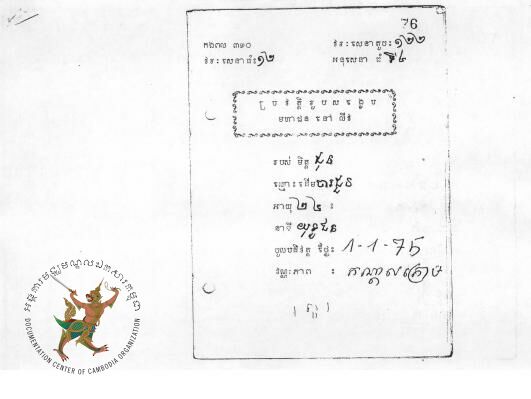 76
កងពល ៣១០
វរៈសេនាតូច៖ ១២២
វរៈសេនាធំ៖ ១២
អនុសេនា ធំ ទី៤
ប្រវត្តិរូបសង្ខេប
មហាជន នៅ លីវ
របស់ មិត្ត ជុន
ឈ្មោះដើម ចារជួន
អាយុ ២៤ ៖
នាទី យុទ្ធជន
ចូលបដិវត្ត ថ្ងៃ៖ 1-1-75
វណ្ណៈភាព ៖ កណ្តាលក្រោម
អង្គការមជ្ឈមណ្ឌលឯកសារកម្ពុជា
DOCUMENTATION CENTER OF CAMBODIA ORGANIZATION